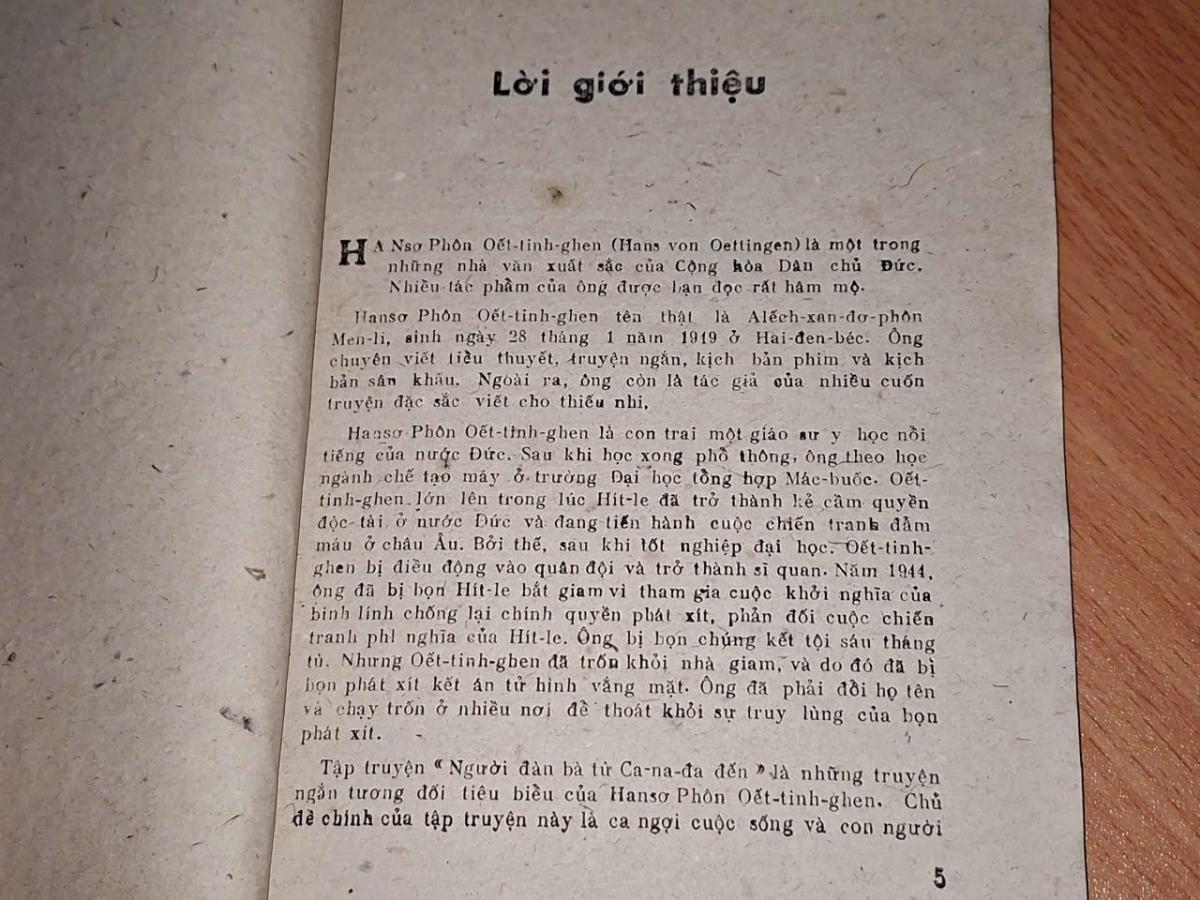 Lời giới thiệu
HANsơ Phôn Oết-tinh-ghen (Hans von Oettingen) là một trong
những nhà văn xuất sắc của Cộng hòa Dân chủ Đức.
Nhiều tác phẩm của ông được bạn đọc rất hâm mộ.
Hansơ Phôn Oết-tinh-ghen tên thật là Alếch-xan-đơ-phôn
Men-li, sinh ngày 28 tháng 1 năm 1919 ở Hai-đen-béc. Ông
chuyên viết tiểu thuyết, truyện ngắn, kịch bản phim và kịch
bản sân khấu. Ngoài ra, ông còn là tác giả của nhiều cuốn
truyện đặc sắc viết cho thiếu nhi,
Hansơ Phôn Oết-tinh-ghen là con trai một giáo sư y học nổi
tiếng của nước Đức. Sau khi học xong phổ thông, ông theo học
ngành chế tạo máy ở trường Đại học tổng hợp Mác-buốc. Oết-
tinh-ghen lớn lên trong lúc Hít-le đã trở thành kẻ cầm quyền
độc tài ở nước Đức và đang tiến hành cuộc chiến tranh đẫm
máu ở châu Âu. Bởi thế, sau khi tốt nghiệp đại học. Oết-tinh-
ghen bị điều động vào quân đội và trở thành sĩ quan. Năm 1944,
ông đã bị bọn Hít-le bắt giam vì tham gia cuộc khởi nghĩa của
binh lính chống lại chính quyền phát xít, phản đối cuộc chiến
tranh phi nghĩa của Hít-le. Ông bị bọn chúng kết tội sáu tháng
tù. Nhưng Oết-tinh-ghen đã trốn khỏi nhà giam, và do đó đã bị
bọn phát xít kết án tử hình vắng mặt. Ông đã phải đổi họ tên
và chạy trốn ở nhiều nơi để thoát khỏi sự truy lùng của bọn
phát xít.
Tập truyện « Người đàn bà từ Ca-na-đa đến » là những truyện
ngắn tương đối tiêu biểu của Hansơ Phôn Oết-tinh-ghen. Chủ
đề chính của tập truyện này là ca ngợi cuộc sống và con người
5